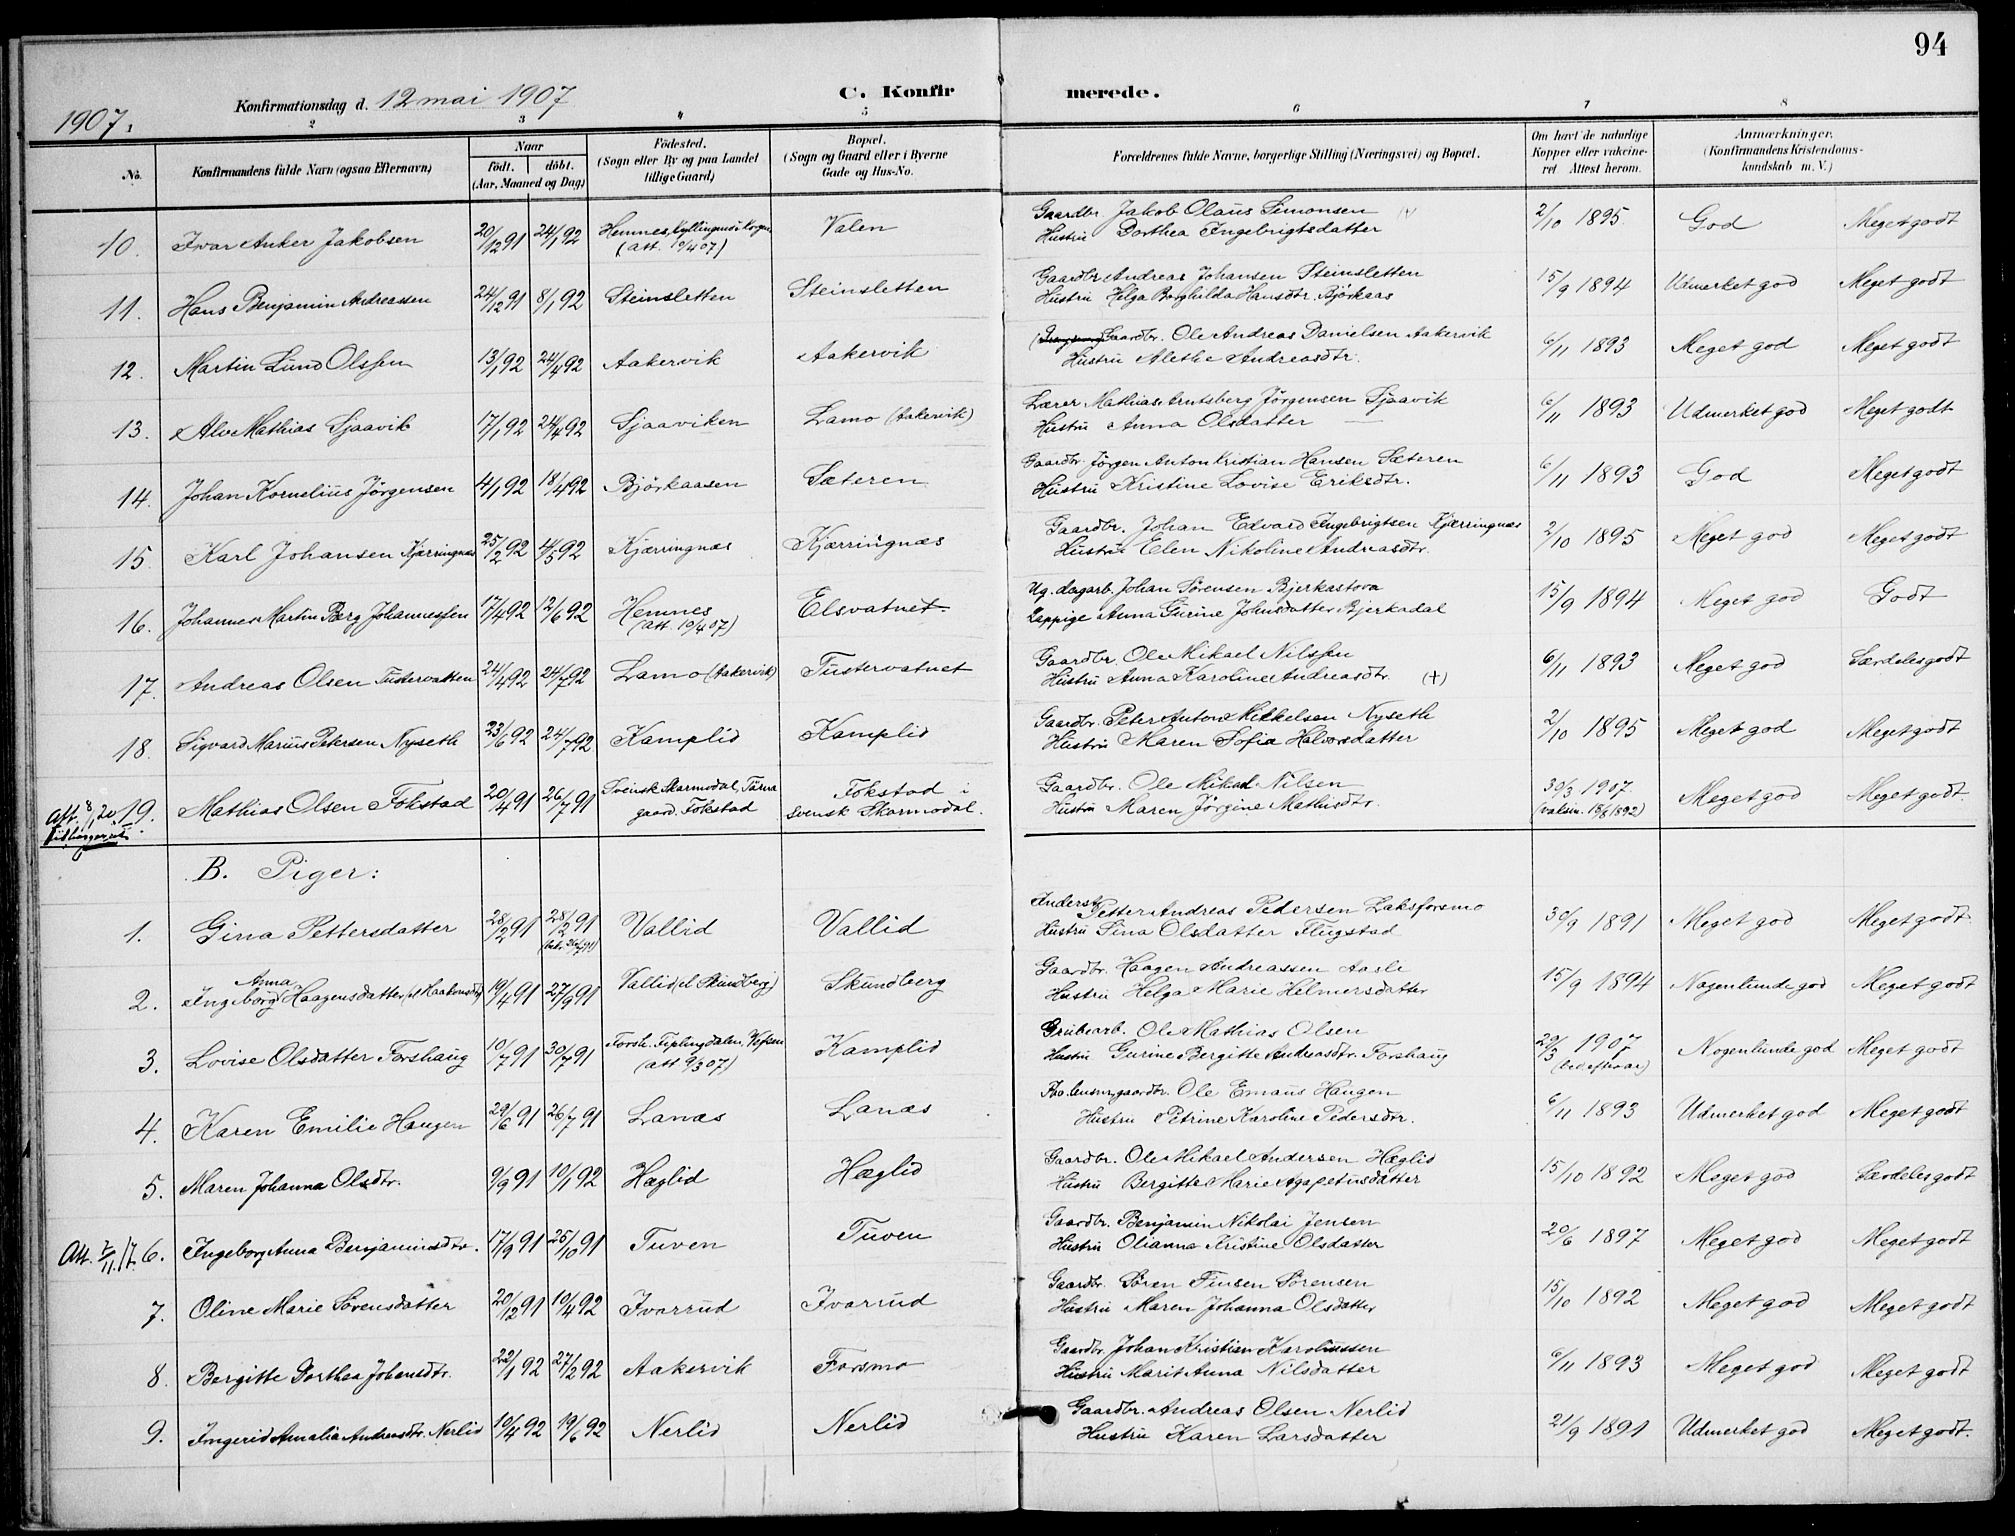 94
1907.
Konfirmationsdag d. 12 mai 1907
C. Konfirmerede.
2 3 4 5 6 7 8
No.
Konfirmandens fulde Navn (ogsaa Efternavn)
Naar
födt. döbt.
(Aar, Maaned og Dag)
Födested.
(Sogn eller By og paa Landet tillige Gaard)
Bopæl.
(Sogn og Gaard eller i Byerne Gade og Hus-No.
Forældrenes fulde Navne, borgerlige Stilling (Næringsvei) og Bopæl.
Om havt de naturlige Kopper eller vakcineret Attest herom.
Anmærkninger.
(Konfirmandens Kristendomskundskab m. V.)
10. Ivar Anker Jakobsen 20/12 91 24/1 92 Hemnes, (att. 10/4 07) Valen Gaardbr. Jakob Olaus Simonsen
Hustru Dorthea Ingebrigtsdatter 2/10 1895 God Meget godt
11. Hans Benjamin Andreassen 24/12 91 8/1 92 Steinsletten Steinsletten Gaardbr. Andreas Johansen Steinsletten
Hustru Helga Borghilda Hansdtr. Björkaas 15/9 1894 Udmerket god Meget godt
12. Martin Lund Olssen 13/1 92 24/4 92 Aakervik Aakervik Gaardbr. Ole Andreas Danielsen Aakervik
Hustru Alethe Andreasdtr. 6/11 1893 Meget god Meget godt
13. Alv Mathias Sjaavik 17/1 92 24/4 92 Sjaaviken Lamo (Aakervik) Lærer Mathias Arntsberg Jørgensen Sjaavik
Hustru Anna Olsdatter — 6/11 1893 Udmerket god Meget godt
14. Johan Kornelius Jörgensen 4/1 92 18/4 92 Björkaasen Sæteren Gaardbr. Jörgen Anton Kristian Hansen Sæteren
Hustru Kristine Lovise Eriksdtr. 6/11 1893 God Meget godt
15. Karl Johansen Kjærringnæs 25/2 92 4/5 92 Kjærringnæs Kjærringnæs Gaardbr. Johan Edvard Ingebrigtsen Kjærringnæs
Hustru Elen Nikoline Andreasdtr. 2/10 1895 Meget god Meget godt
16. Johannes Martin Berg Johannessen 17/4 92 12/6 92 Hemnes (att. 10/4 07) Elsvatnet. Ug. dagarb. Johan Sörensen Bjerkastova
Lappige Anna Gurine Johnsdatter Bjerkadal 15/9 1894 Meget god Godt
17. Andreas Olsen Tustervatten 24/4 92 24/7 92 Lamo (Aakervik) Tustervatnet Gaardbr. Ole Mikael Nilssen
Hustru Anna Karoline Andreasdtr. (+) 6/11 1893 Meget god Særdeles godt
18. Sigvard Marius Petersen Nyseth 23/6 92 24/7 92 Kamplid Kamplid Gaardbr. Peter Anton Mikkelsen Nyseth
Hustru Maren Sofia Halvorsdatter 2/10 1895 Meget god Meget godt
19. Mathias Olsen Fokstad 20/4 91 26/7 91 Svensk Skarmodal, Tärna gaard. Fokstad Fokstad i svensk Skarmodal. Gaardbr. Ole Mikal Nilsen
Hustru Maren Jörgine Mathisdtr. 30/3 1907 (vaksin. 18/8 1892) Meget god Meget godt.
B. Piger:
1. Gina Pettersdatter 28/2 91 28/2 91 Vallid Vallid Petter Andreas Pedersen Laksforsmo
Hustru Sina Olsdatter Flugstad 30/9 1891 Meget god Meget godt.
2. Ingeborg Anna Haagensdatter (el. Haakonsdtr) 19/4 91 27/9 91 Vallid (el. Skundberg) Skundberg Gaardbr. Haagen Andreassen Aasli
Hustru Helga Marie Helmersdatter 15/9 1894 Nogenlunde god Meget godt
3. Lovise Olsdatter Forshaug 10/7 91 30/7 91 Forsh. Fiplingdalen, Vefsen (att 9/3 07) Kamplid Grubearb. Ole Mathias Olsen
Hustru Gurine Bergitte Andreasdtr. Forshaug 29/3 1907 Nogenlunde god Meget godt
4. Karen Emilie Haugen 29/6 91 26/7 91 Lanæs Lanæs Ole Emaus Haugen
Hustru Petrine Karoline Pedersdtr. 6/11 1893 Udmerket god Meget godt
5. Maren Johanna Olsdtr. 9/9 91 10/1 92 Hæglid Hæglid Gaardbr. Ole Mikael Andersen Hæglid
Hustru Bergitte Marie Agapetusdatter 15/10 1892 Meget god Særdeles godt
Att. 2/11.17. 6. Ingeborg Anna Benjaminsdtr. 17/9 91 25/10 91 Tuven Tuven Gaardbr. Benjamin Nikolai Jensen
Hustru Olianna Kristine Olsdatter 20/6 1897 Meget god Meget godt
7. Oline Marie Sörensdatter 20/12 91 10/4 92 Ivarrud Ivarrud Gaardbr. Sören Finsen Sörensen
Hustru Maren Johanna Olsdatter 15/10 1892 Meget god Meget godt
8. Bergitte Dorthea Johansdtr. 22/1 92 27/2 92 Aakervik Forsmo Gaardbr. Johan Kristian Karoliussen
Hustru Marit Anna Nilsdatter 6/11 1893 Meget god Meget godt
9. Ingerid Amalia Andreasdtr. Nerlid 10/4 92 19/6 92 Nerlid Nerlid Gaardbr. Andreas Olsen Nerlid
Hustru Karen Larsdatter 21/9 1891 Udmerket god Meget godt.